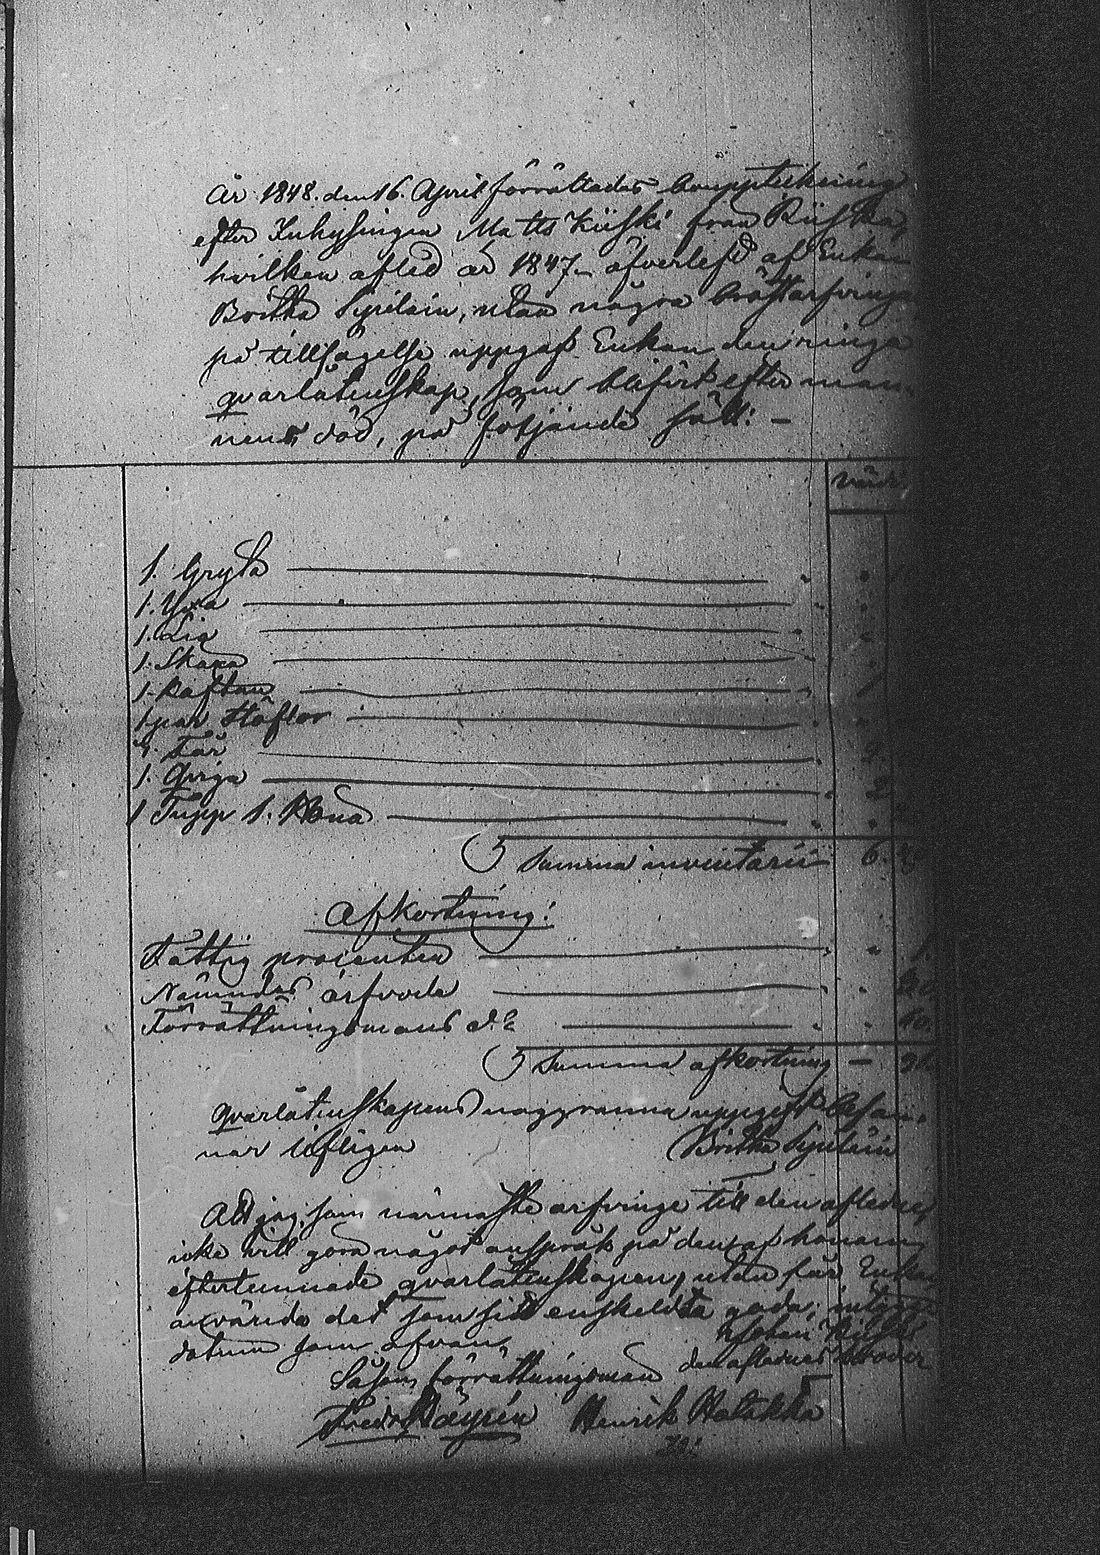 År 1848. den 16. April förrättades bouppteckning
efter Inhysingen Matts Kiiski från Kiiskilä,
hvilken afled år 1847. öfverlefd af Enkan
Britha Sipiläin, utan några bröstarfvingar
på tillfägelse uppgaf Enkan den ringa
qvarlåtenskap, som blifvit efter man-
nens död, på följande sätt: -
värd.
1. Gryta
1. Yxa
1. Lia
1. Skära
1. Kaftan 1
1 par Stöflor
Får
1. Qviga 2
1 Tupp 1. Höna
Summa inventarii 6.
Afkortning:
Fattig procenten 1.
Nämndes arfvode
Förrättningsmans d:o
Summa afkortning
Qvarlåtenskapens noggranna uppgift besan-
nar lifligen Britha Sipiläin
Att jag, som närmaste arfvinge till den aflednes
icke vill göra något anspråk på den af honom
efterlemnade qvarlåtenskapen, utan får Enkan
använda det som sitt enskildta goda; intygar
datum som ofvan, Johan Kiiski
den aflednes broder
Såsom förrättningsman
Fredr. Häyrén Henrik Hatakka